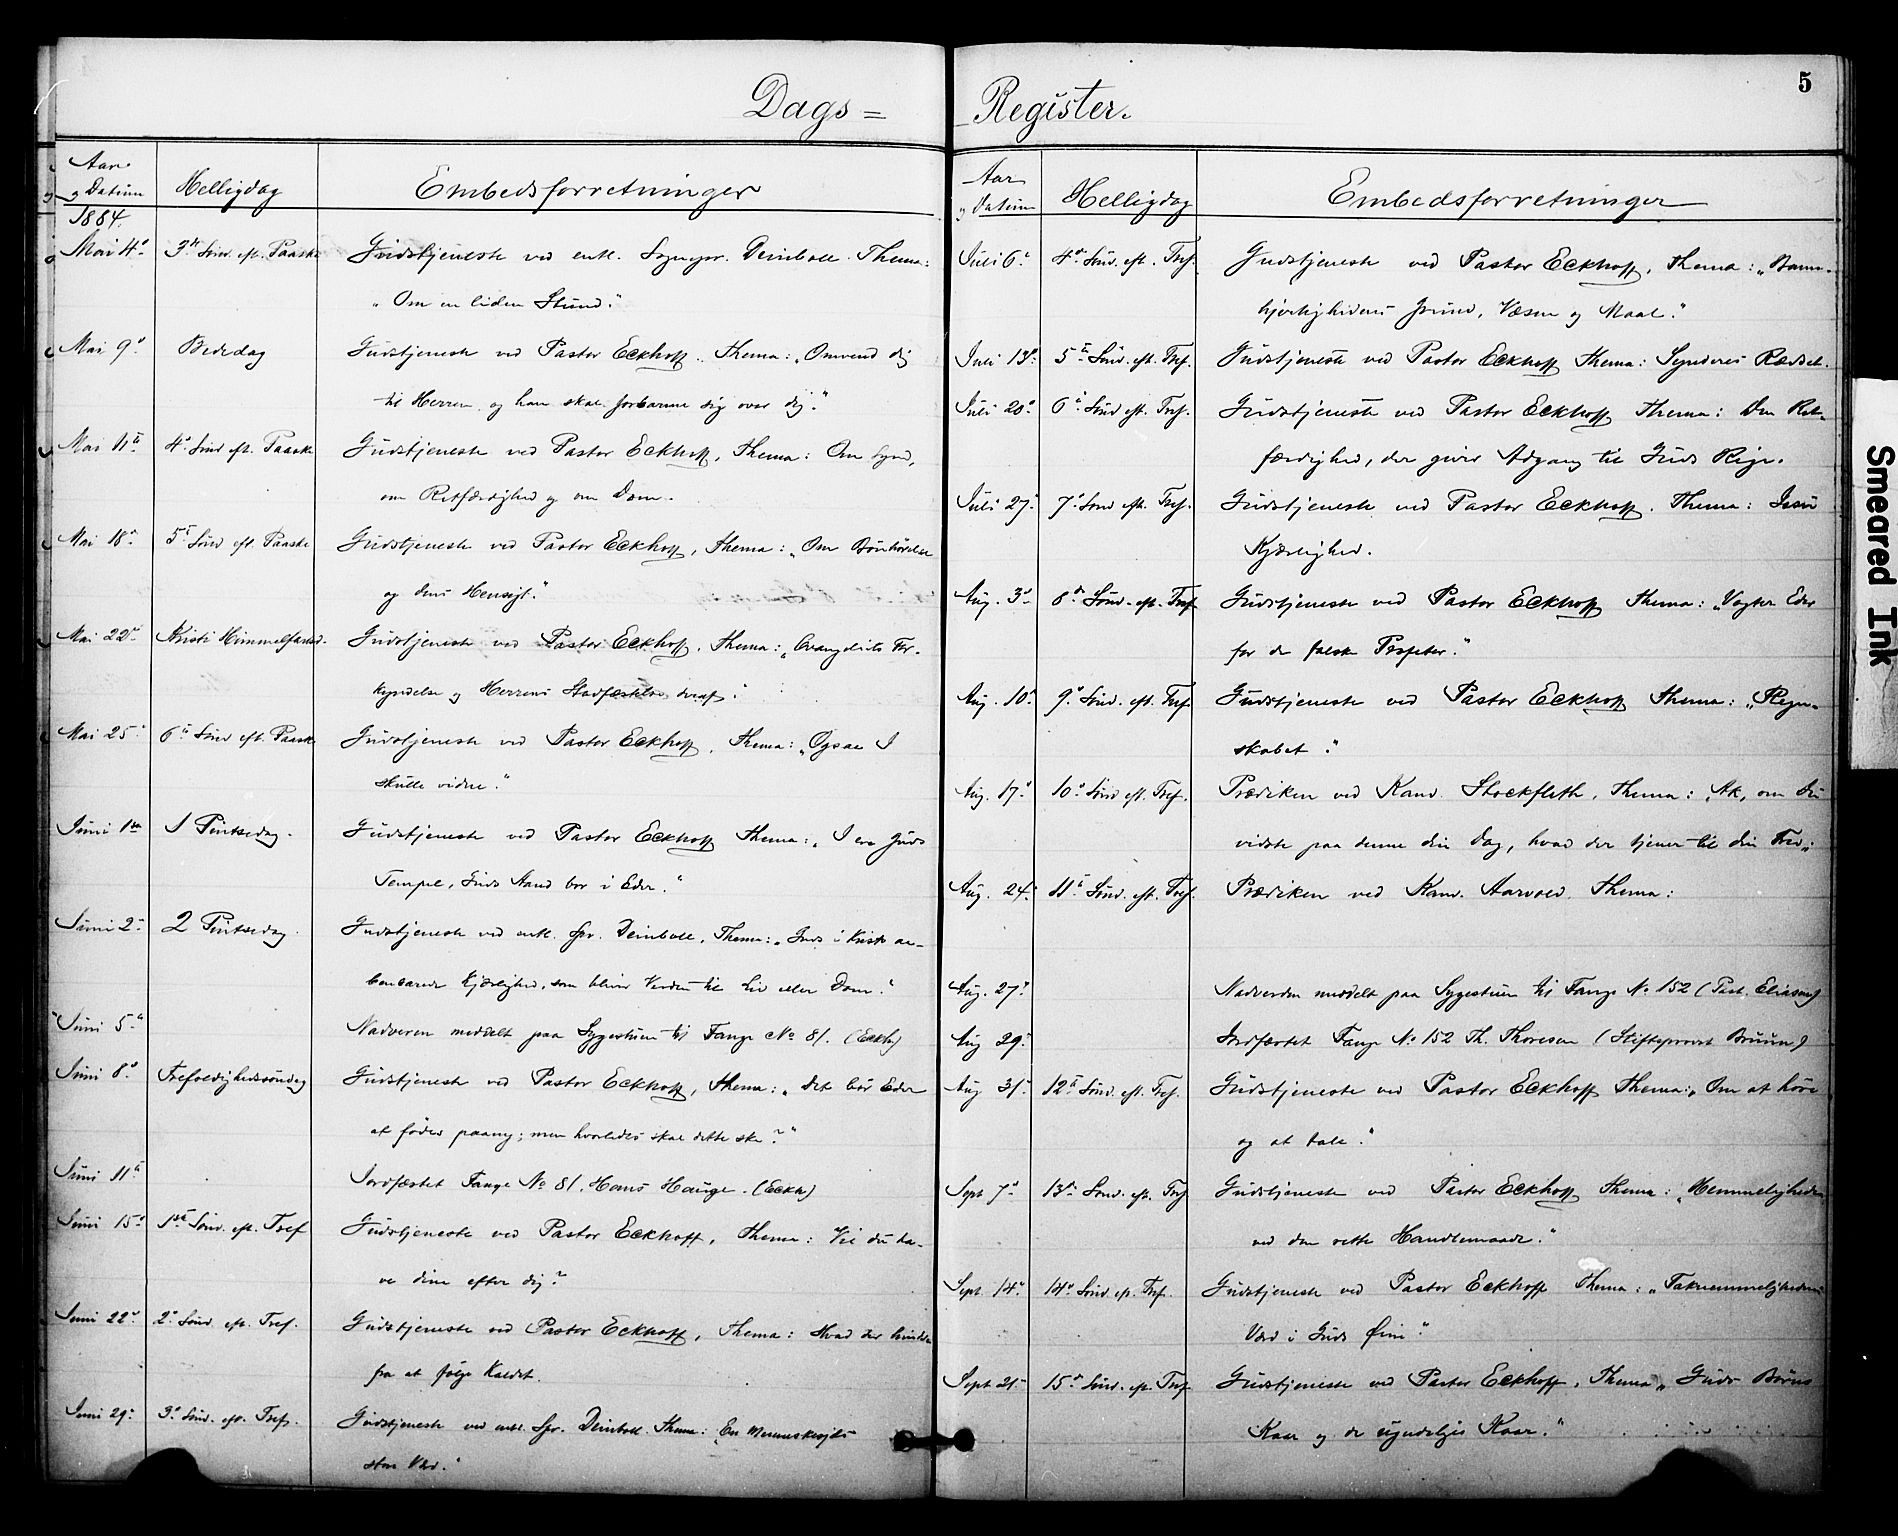 Dags=
Aar
og Datum
Helligdag
Embedsforretninger
1884.
Mai 4. 3die Sönd. eft. Paaske Gudstjeneste ved entl. Sognepr. Deinboll. Thema:
"Om en liden Stund."
Mai 9. Bededag Gudstjeneste ved Pastor Eckhoff. Thema: "Omvend dig
til Herren og han skal forbarme sig over dig."
Mai 11te 4. Sönd eft. Paaske Gudstjeneste ved Pastor Eckhoff, Thema: Om Synd,
om Retfærdighed og om Dom.
Mai 18. 5te Sönd eft. Paaske Gudstjeneste ved Pastor Eckhoff, Thema: "Om Bönhörelse
og dens Hensigt."
Mai 22. Kristi Himmelfartsd. Gudstjeneste ved Pastor Eckhoff, Thema: "Evangeliets For-
kyndelse og Herrens Stadfæstelse deraf."
Mai 25. 6te Sönd eft. Paaske Gudstjeneste ved Pastor Eckhoff, Thema: "Ogsaa I
skulle vidne."
Juni 1ste 1 Pintsedag. Gudstjeneste ved Pastor Eckhoff Thema: "I ere Guds
Tempel, Guds Aand bor i Eder."
Juni 2. 2 Pintsedag. Gudstjeneste ved entl. Spr. Deinboll, Thema: "Guds i Kristo aa-
benbarede Kjærlighed, som bliver Verden til Liv eller Dom."
Juni 5. Nadveren meddelt paa Sygestuen til Fange No 81. (Eckh.)
Juni 8. Trefoldighedssöndag Gudstjeneste ved Pastor Eckhoff, Thema: "Det bör Eder
at födes paany; men hvorledes skal dette ske?"
Juni 11te Jordfæstet Fange No 81, Hans Hauge. (Eckh.)
Juni 15. 1ste Sönd. eft. Tref Gudstjeneste ved Pastor Eckhoff, Thema: Vil du ha-
ve dine efter dig?
Juni 22. 2. Sönd. eft. Tref. Gudstjeneste ved Pastor Eckhoff, Thema: Hvad der hindrer
fra at fölge Kaldet.
Juni 29. 3. Sönd. eft. Tref. Gudstjeneste ved entl. Spr. Deinboll. Thema: "En Menneskesjæls
store Værd."
Register.
5
Aar
og Datum
Helligdag
Embedsforretninger
Juli 6. 4. Sönd. eft. Tref. Gudstjeneste ved Pastor Eckhoff, Thema: "Barm-
hjertighedens Grund, Væsen og Maal."
Juli 13. 5te Sönd. eft. Tref. Gudstjeneste ved Pastor Eckhoff Thema: Synderes Rædsel.
Juli 20. 6te Sönd eft. Tref. Gudstjeneste ved Pastor Eckhoff Thema: Den Ret-
færdighed, der giver Adgang til Guds Rige.
Juli 27. 7. Sönd eft. Tref. Gudstjeneste ved Pastor Eckhoff. Thema: Jesu
Kjærlighed.
Aug. 3. 8de Sönd. eft. Tref Gudstjeneste ved Pastor Eckhoff Thema: "Vogter Eder
for de falske Profeter."
Aug. 10. 9. Sönd. eft. Tref. Gudstjeneste ved Pastor Eckhoff Thema: "Regn-
skabet."
Aug. 17. 10. Sönd eft. Tref. Prædiken ved Kand. Stockfleth, Thema: "Ak, om du
vidste paa denne din Dag, hvad der tjener til din Fred."
Aug. 24. 11te Sönd. eft. Tref. Prædiken ved Kand. Aarvold. Thema:
Aug. 27. Nadveren meddelt paa Sygestuen til Fange No 152 (Past. Eliassen)
Aug 29. Jordfæstet Fange No 152 Th. Thoresen (Stiftsprovst Bruun)
Aug 31. 12te Sönd. eft. Tref. Gudstjeneste ved Pastor Eckhoff Thema: "Om at höre
og at tale."
Sept 7. 13. Sönd. eft. Tref Gudstjeneste ved Pastor Eckhoff Thema: "Hemmeligheden
ved den rette Handlemaade."
Sept 14. 14. Sönd. ef. Tref. Gudstjeneste ved Pastor Eckhoff Thema: "Taknemmelighedens
Værd i Guds Öine."
Sept 21. 15. Sönd. ef. Tref Gudstjeneste ved Pastor Eckhoff, Thema "Guds Börns
Kaar og de ugudeliges Kaar."
Smeared Ink